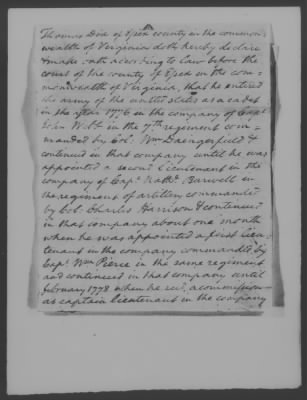 Thomas Dix of Essex county in the common-
wealth of Virginia doth hereby declare
& make oath according to law before the
court of the county of Essex in the com-
monwealth of Virginia, that he entered
the army of the united states as a cadet
in the year 1776 in the company of Capt.
John Webb in the 7th regiment com-
manded by Col. Wm Daingerfield &
continued in that company until he was
appointed a second Lieutenant in the
company of Capt. Nathl. Burwell in
the regiment of artillery commanded
by Col. Charles Harrison & continued
in that company about one month
when he was appointed a first lieu-
tenant in the company commanded by
Capt. Wm Pierce in the same regiment
and continued in that company until
february 1778 when he recd. a commission
as captain lieutenant in the company